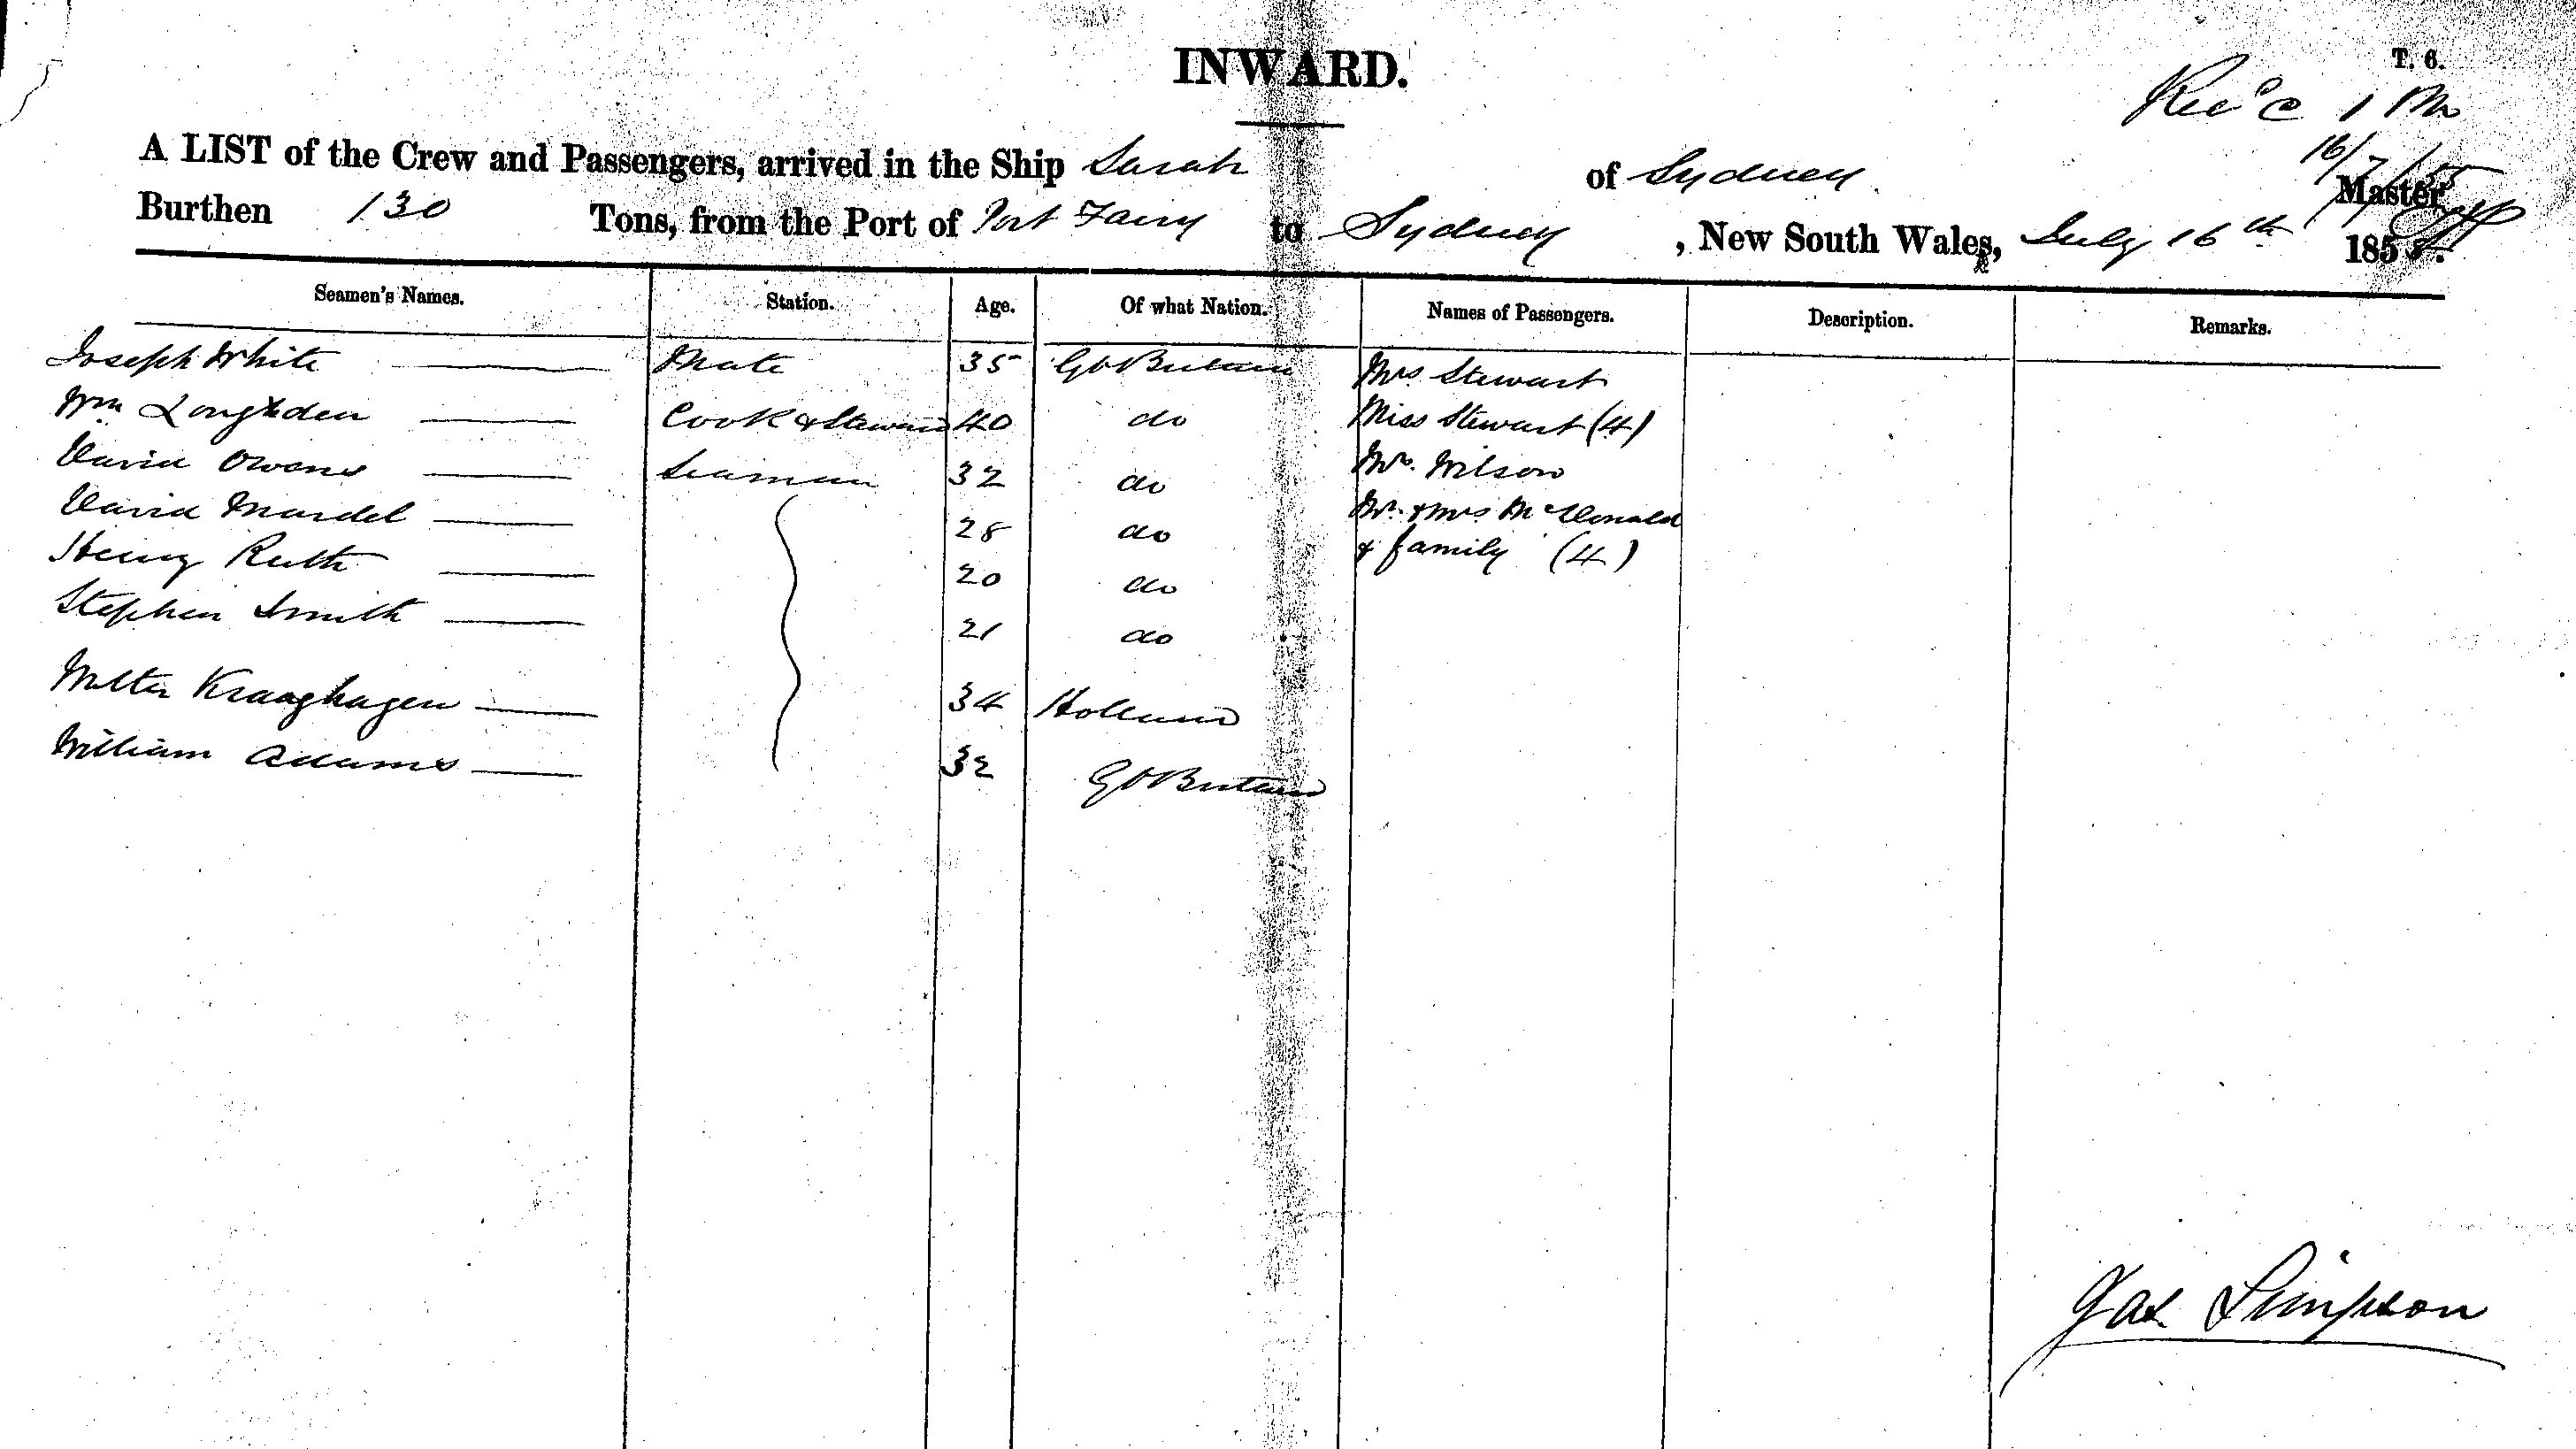 INWARD.
T. 6.
Rec'd 1 Pm
16/7/55
A LIST of the Crew and Passengers, arrived in the Ship Sarah of Sydney Master
Burthen 130 Tons, from the Port of Port Fairy to Sydney , New South Wales, July 16th 1855.
Seamen's Names. Station. Age. Of what Nation. Names of Passengers. Description. Remarks.
Joseph White Mate 35 Gt Britain Mrs Stewart
Wm Cook & Steward 40 do Miss Stewart (4)
David Owens Seaman 32 do Mr. Wilson
David Mardel 28 do Mr. & Mrs McDonald
Henry Ruth 20 do & family (4)
Stephen Smith 21 do
Kraaghagen 34 Holland
William Adams 32 Gt Britain
Jas Simpson